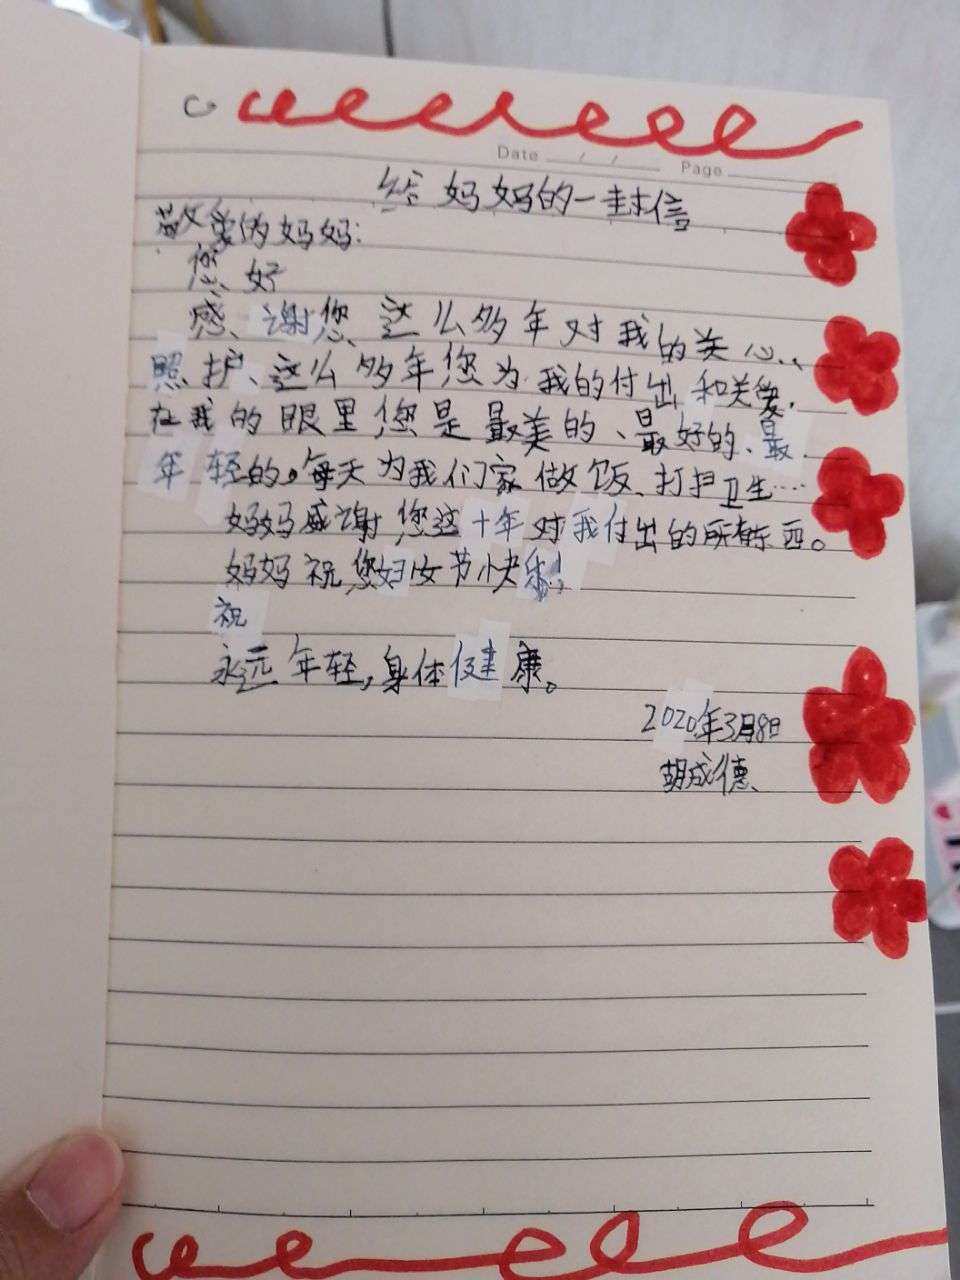 Date / / Page
给妈妈的一封信
敬爱的妈妈:
您、好
感、谢您、这么多年对我的关心、、
照护、这么多年您为我的付出和关爱,
在我的眼里,您是最美的、最好的、最
年轻的。每天为我们家做饭、打扫卫生……
妈妈感谢,您这十年对我付出的所有东西。
妈妈祝您妇女节快乐!
祝
永远年轻,身体健康。
2020年3月8日
胡成德